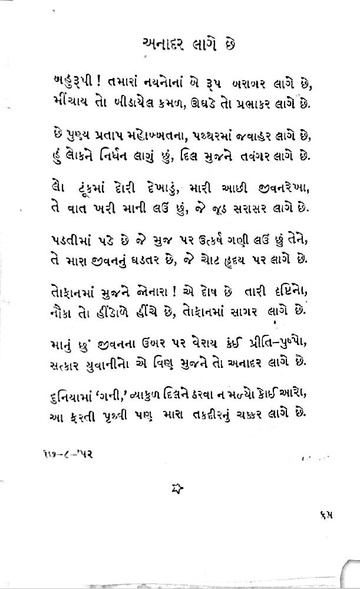 અનાદર લાગે છે
બહુરૂપી ! તમારાં નયનોનાં બે રૂપ બરાબર લાગે છે,
મીંચાય તો બીડાયેલ કમળ, ઊઘડે તો પ્રભાકર લાગે છે.
છે પુણ્ય પ્રતાપ મહોબ્બતના, પથ્થરમાં જવાહર લાગે છે,
હું લોકને નિર્ધન લાગું છું, દિલ મુજને તવંગર લાગે છે.
લો ટૂંકમાં દોરી દેખાડું, મારી આછી જીવનરેખા,
તે વાત ખરી માની લઉં છું, જે જૂઠ સરાસર લાગે છે.
પડતીમાં પડે છે જે મુજ પર ઉત્કર્ષ ગણી લઉં છું તેને,
તે મારા જીવનનું ઘડતર છે, જે ચોટ હૃદય પર લાગે છે.
તોફાનમાં મુજને જોનારા ! એ દોષ છે તારી દૃષ્ટિનો,
નૌકા તો હીંડોળે હીંચે છે, તોફાનમાં સાગર લાગે છે.
માનું છું જીવનના ઉંબર પર વેરાય કંઈ પ્રીતિ-પુષ્પો,
સત્કાર યુવાનીનો એ વિણ મુજને તો અનાદર લાગે છે.
દુનિયામાં ‘ગની,’ વ્યાકુળ દિલને ઠરવા ન મળ્યો કોઈ આરો,
આ ફરતી પૃથ્વી પણ મારા તકદીરનું ચક્કર લાગે છે.
૧૭-૮-’૫૨
૬૫